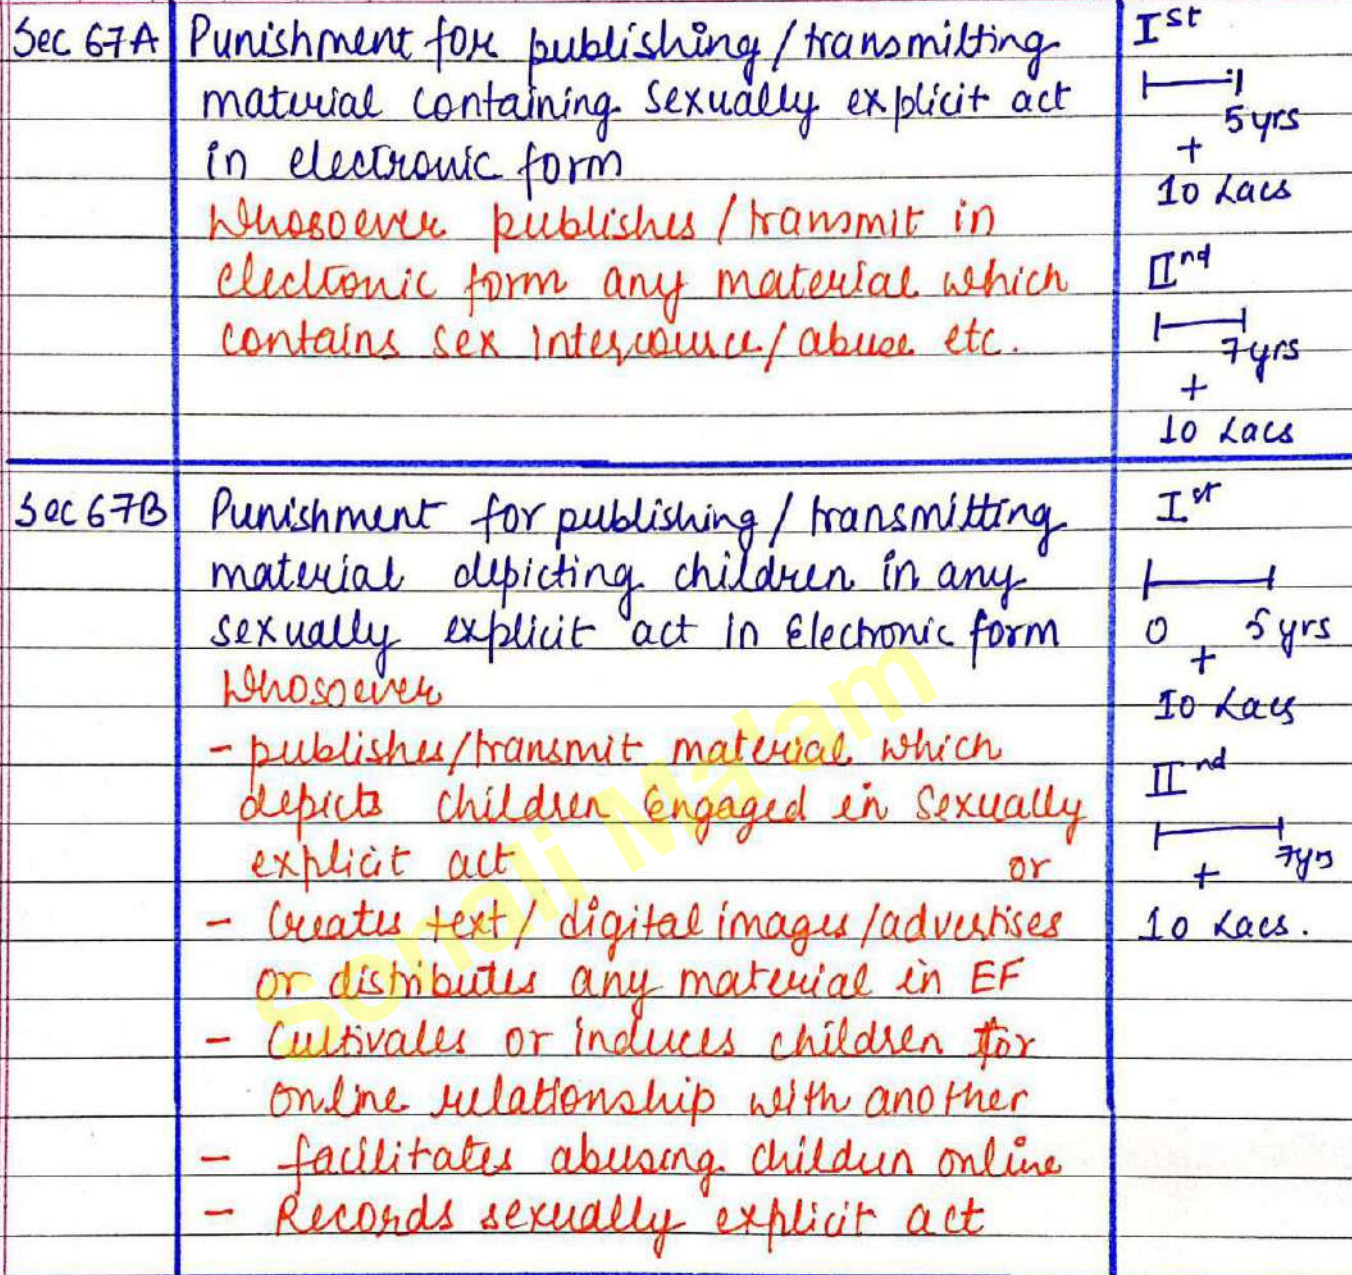 Sec 67A
Punishment for publishing/transmitting
material containing sexually explicit act
in electronic form
Whosoever publishes/transmit in
electronic form any material which
contains sex intercource/abuse etc.
Ist
5yrs
+
10 Lacs
IInd
7yrs
+
10 Lacs
Sec 67B
Punishment for publishing/transmitting
material depicting children in any
sexually explicit act in Electronic form
Whosoever
- publishes/transmit material which
depicts children engaged in sexually
explicit act or
- Creates text/digital images/advertises
or distributes any material in EF
- Cultivates or induces children for
online relationship with another
- facilitates abusing children online
- Records sexually explicit act
Ist
0 5yrs
+
10 Lacs
IInd
7yrs
+
10 Lacs.
Sonali Ma'am